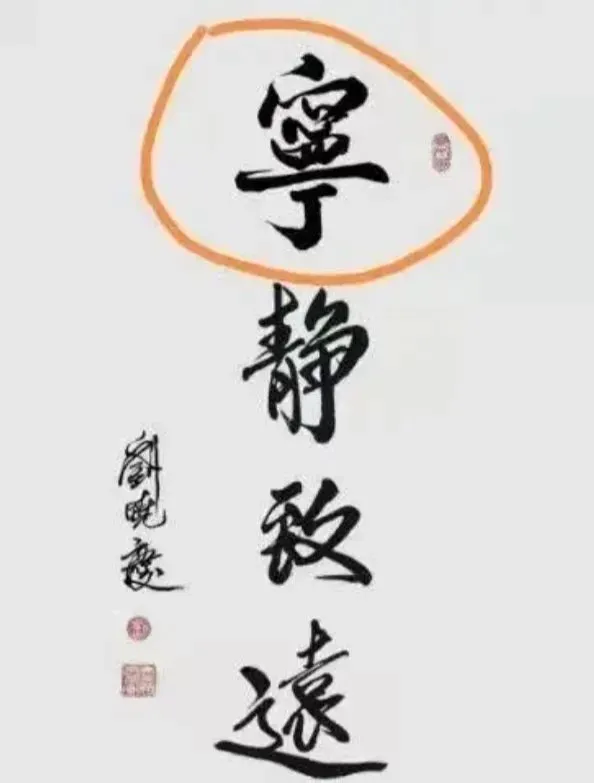 寧
静
致
遠
劉曉慶